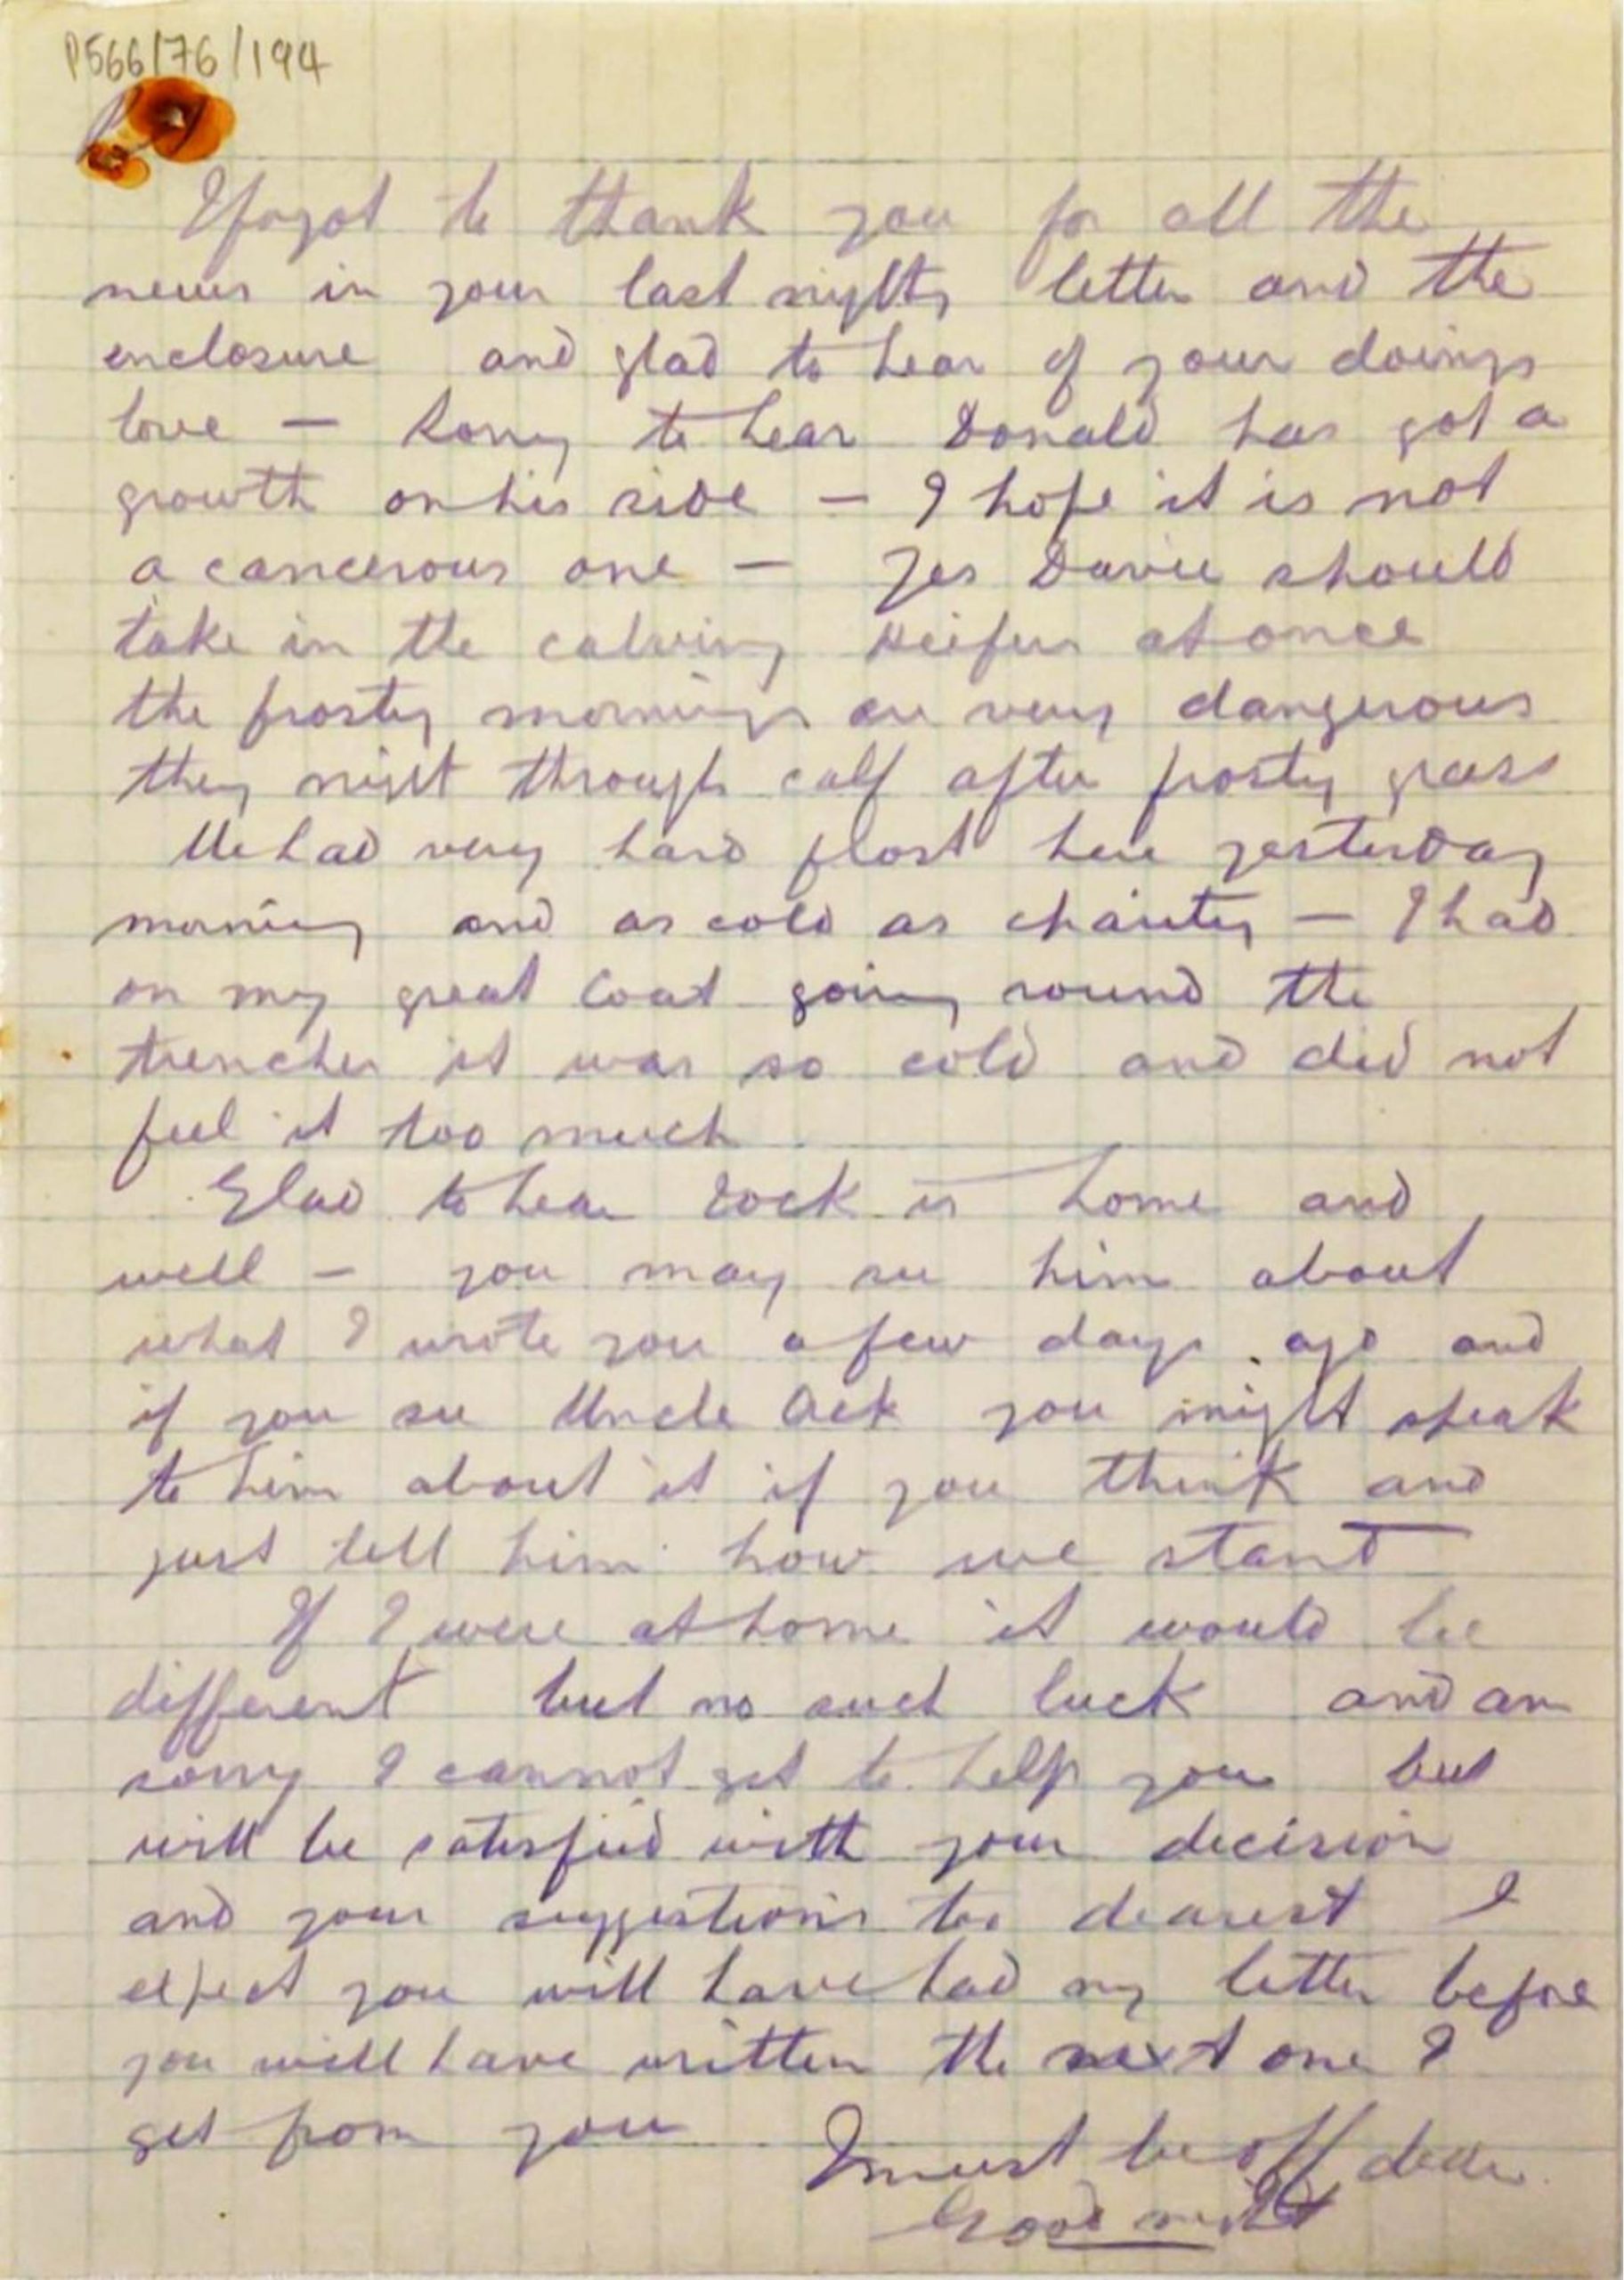 P566/76/194
I forgot to thank you for all the
news in your last nights letter and the
enclosure and glad to hear of your doings
love — Sorry to hear Donald has got a
growth on his side — I hope it is not
a cancerous one — Yes Davie should
take in the calving Heifers at once
the frosty mornings are very dangerous
they might through calf after frosty grass
We had very hard frost here yesterday
morning and as cold as charity — I had
on my great Coat going round the
trenches it was so cold and did not
feel it too much
Glad to hear Jock is home and
well — you may see him about
what I wrote you a few days ago and
if you see Uncle you might speak
to him about it if you think and
just tell him how we stand
If I were at home it would be
different but no such luck and am
sorry I cannot get to help you but
will be satisfied with your decision
and your suggestions too dearest I
expect you will have had my letter before
you will have written the next one I
get from you I must be off dear
Good night